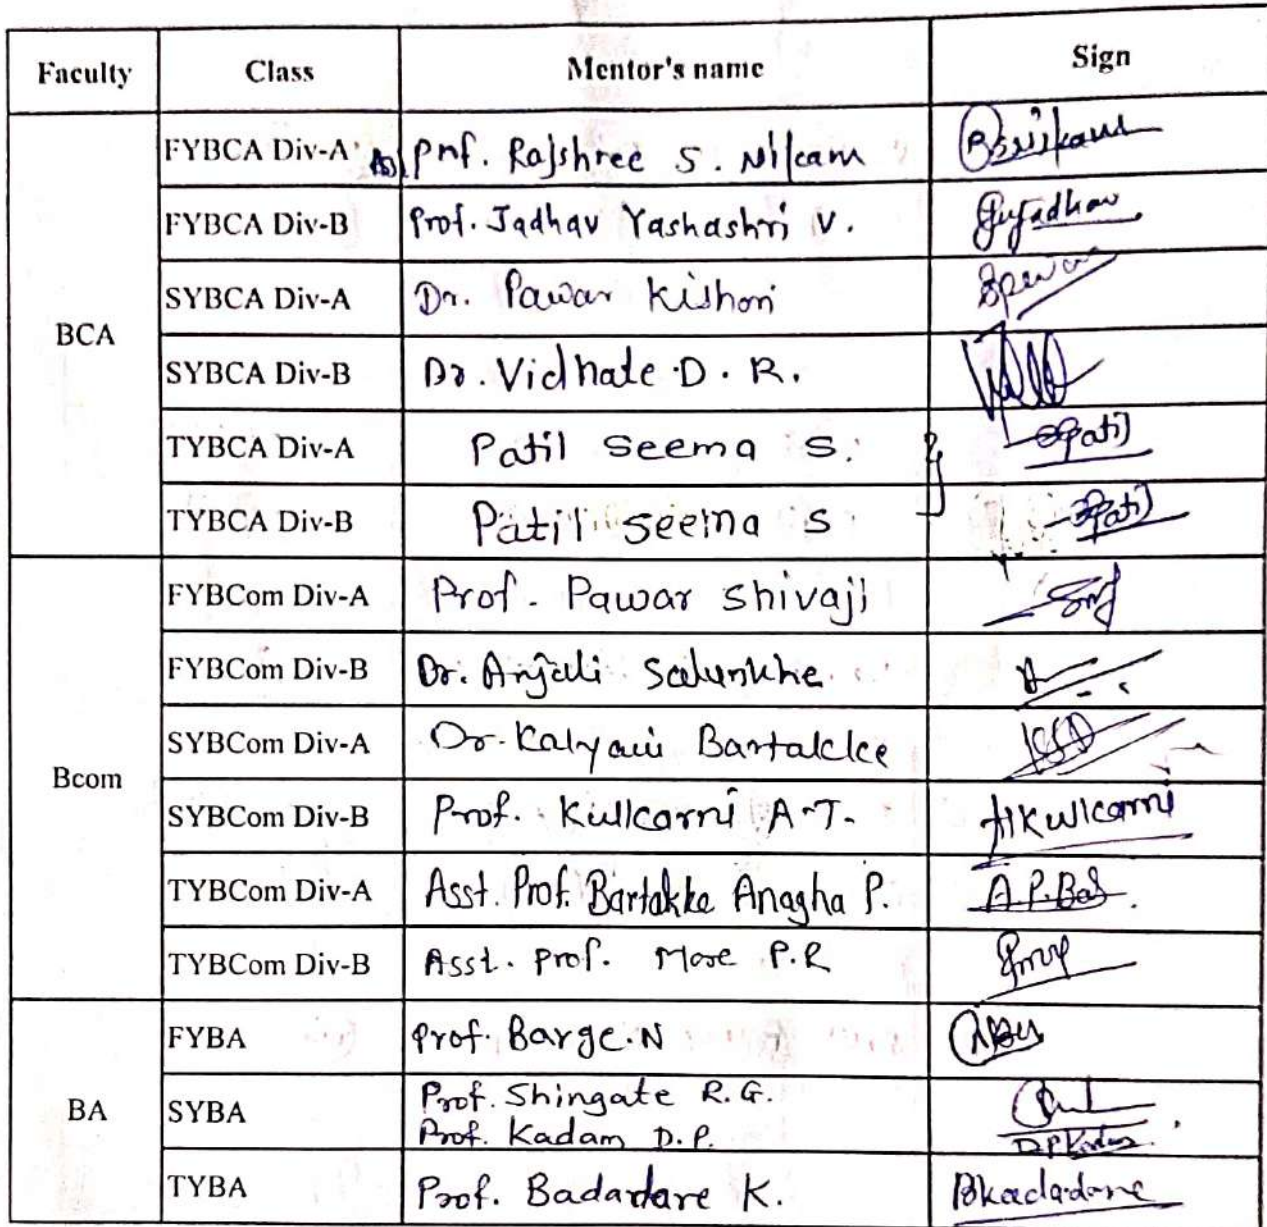 Faculty Class Mentor's name Sign
BCA
FYBCA Div-A Prof. Rajshree S. Nikam
FYBCA Div-B Prof. Jadhav Yashashri V. Jadhav
SYBCA Div-A Dr. Pawar Kishori
SYBCA Div-B Dr. Vidhate D. R.
TYBCA Div-A Patil Seema S. Patil
TYBCA Div-B Patil Seema S Patil
Bcom
FYBCom Div-A Prof. Pawar Shivaji
FYBCom Div-B Dr. Anjali Salunkhe
SYBCom Div-A Dr. Kalyani Bartakke
SYBCom Div-B Prof. Kulkarni A.T. AKulkarni
TYBCom Div-A Asst. Prof. Bartakke Anagha P. A.P.Bar
TYBCom Div-B Asst. Prof. More P.R
BA
FYBA Prof. Barge.N
SYBA Prof. Shingate R.G.
Prof. Kadam D.P. D.P.Kadam
TYBA Prof. Badadare K.